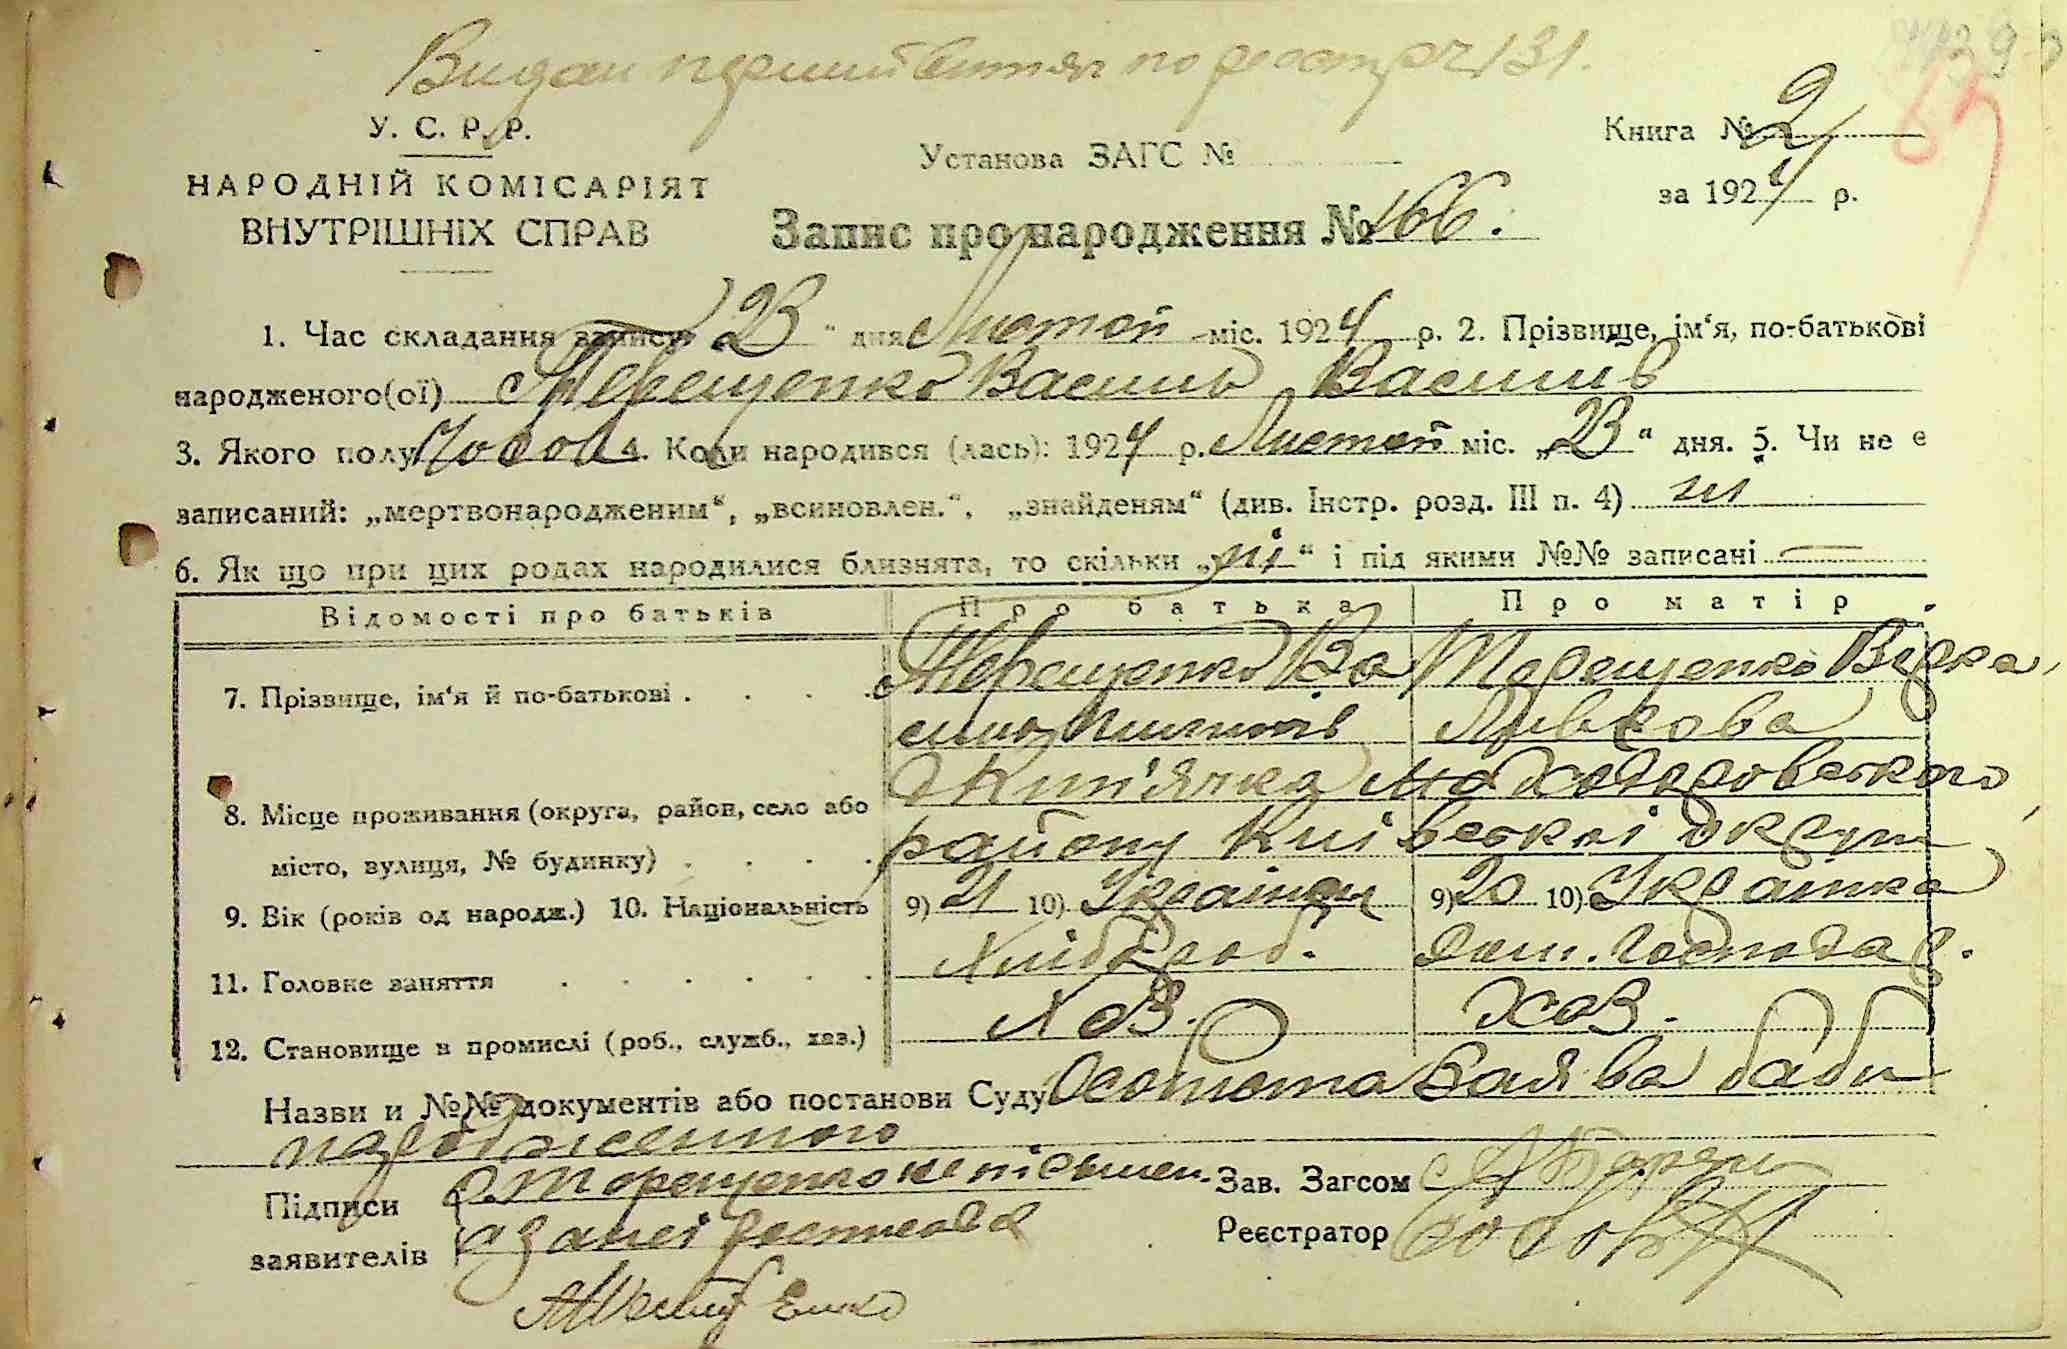 Видан первий витяг по реєстру ч 131.
У. С. Р. Р.
НАРОДНІЙ КОМІСАРІЯТ
ВНУТРІШНІХ СПРАВ
Установа ЗАГС №
Книга № 2
за 1924 р.
Запис про народження № 166.
1. Час складання запису „23“ дня Лютой міс. 1924 р. 2. Прізвище, ім‘я, по-батькові
народженого(ої) Терещенко Василь Василів
3. Якого полу Чолов. 4. Коли народився (лась): 1924 р. Лютой міс. „23“ дня. 5. Чи не є
записаний: „мертвонародженим“, „всиновлен.“, „знайденям“ (див. Інстр. розд. III п. 4) ні
6. Як що при цих родах народилися близнята, то скільки „ні“ і під якими №№ записані —
Відомості про батьків Про батька Про матір
7. Прізвище, ім‘я й по-батькові . . . . Терещенко Ва Терещенко Вірка
силь Пилипів Явдокова
8. Місце проживання (округа, район, село або Ходоровського
місто, вулиця, № будинку) . . . . району Київської округи
9. Вік (років од народж.) 10. Національність 9) 21 10) Українец 9) 20 10) Українка
11. Головне заняття . . . . . . Хлібороб. Дом. Господар.
12. Становище в промислі (роб., служб., хаз.) Хоз. Хоз.
Назви и №№ документів або постанови Суду Особиста заява баби
народженного
Підписи Терещенко неписьмен.
заявителів за неї
Зав. Загсом
Реєстратор